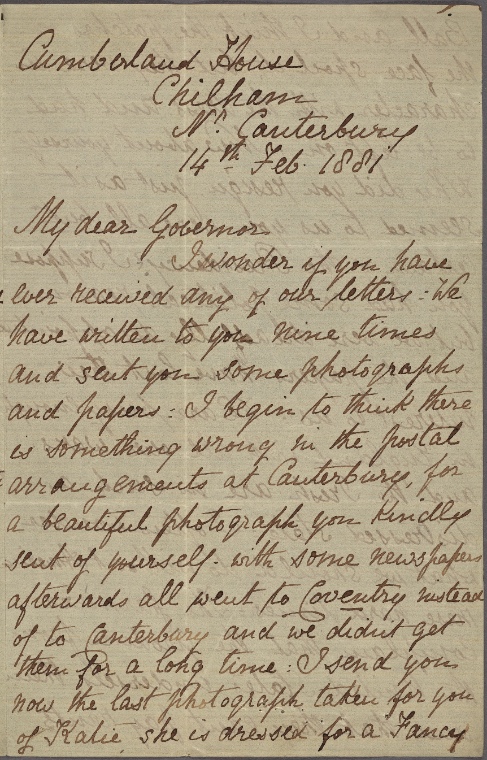 Cumberland House
Chilham
Nr. Canterbury
14th Feb. 1881
My dear Governor
I wonder if you have
ever received any of our letters: We
have written to you nine times
and sent you some photographs
and papers: I begin to think there
is something wrong in the postal
arrangements at Canterbury, for
a beautiful photograph you kindly
sent of yourself. with some newspapers
afterwards all went to Coventry instead
of to Canterbury and we didnt get
them for a long time: I send you
now the last photograph taken for you
of Katie, she is dressed for a Fancy